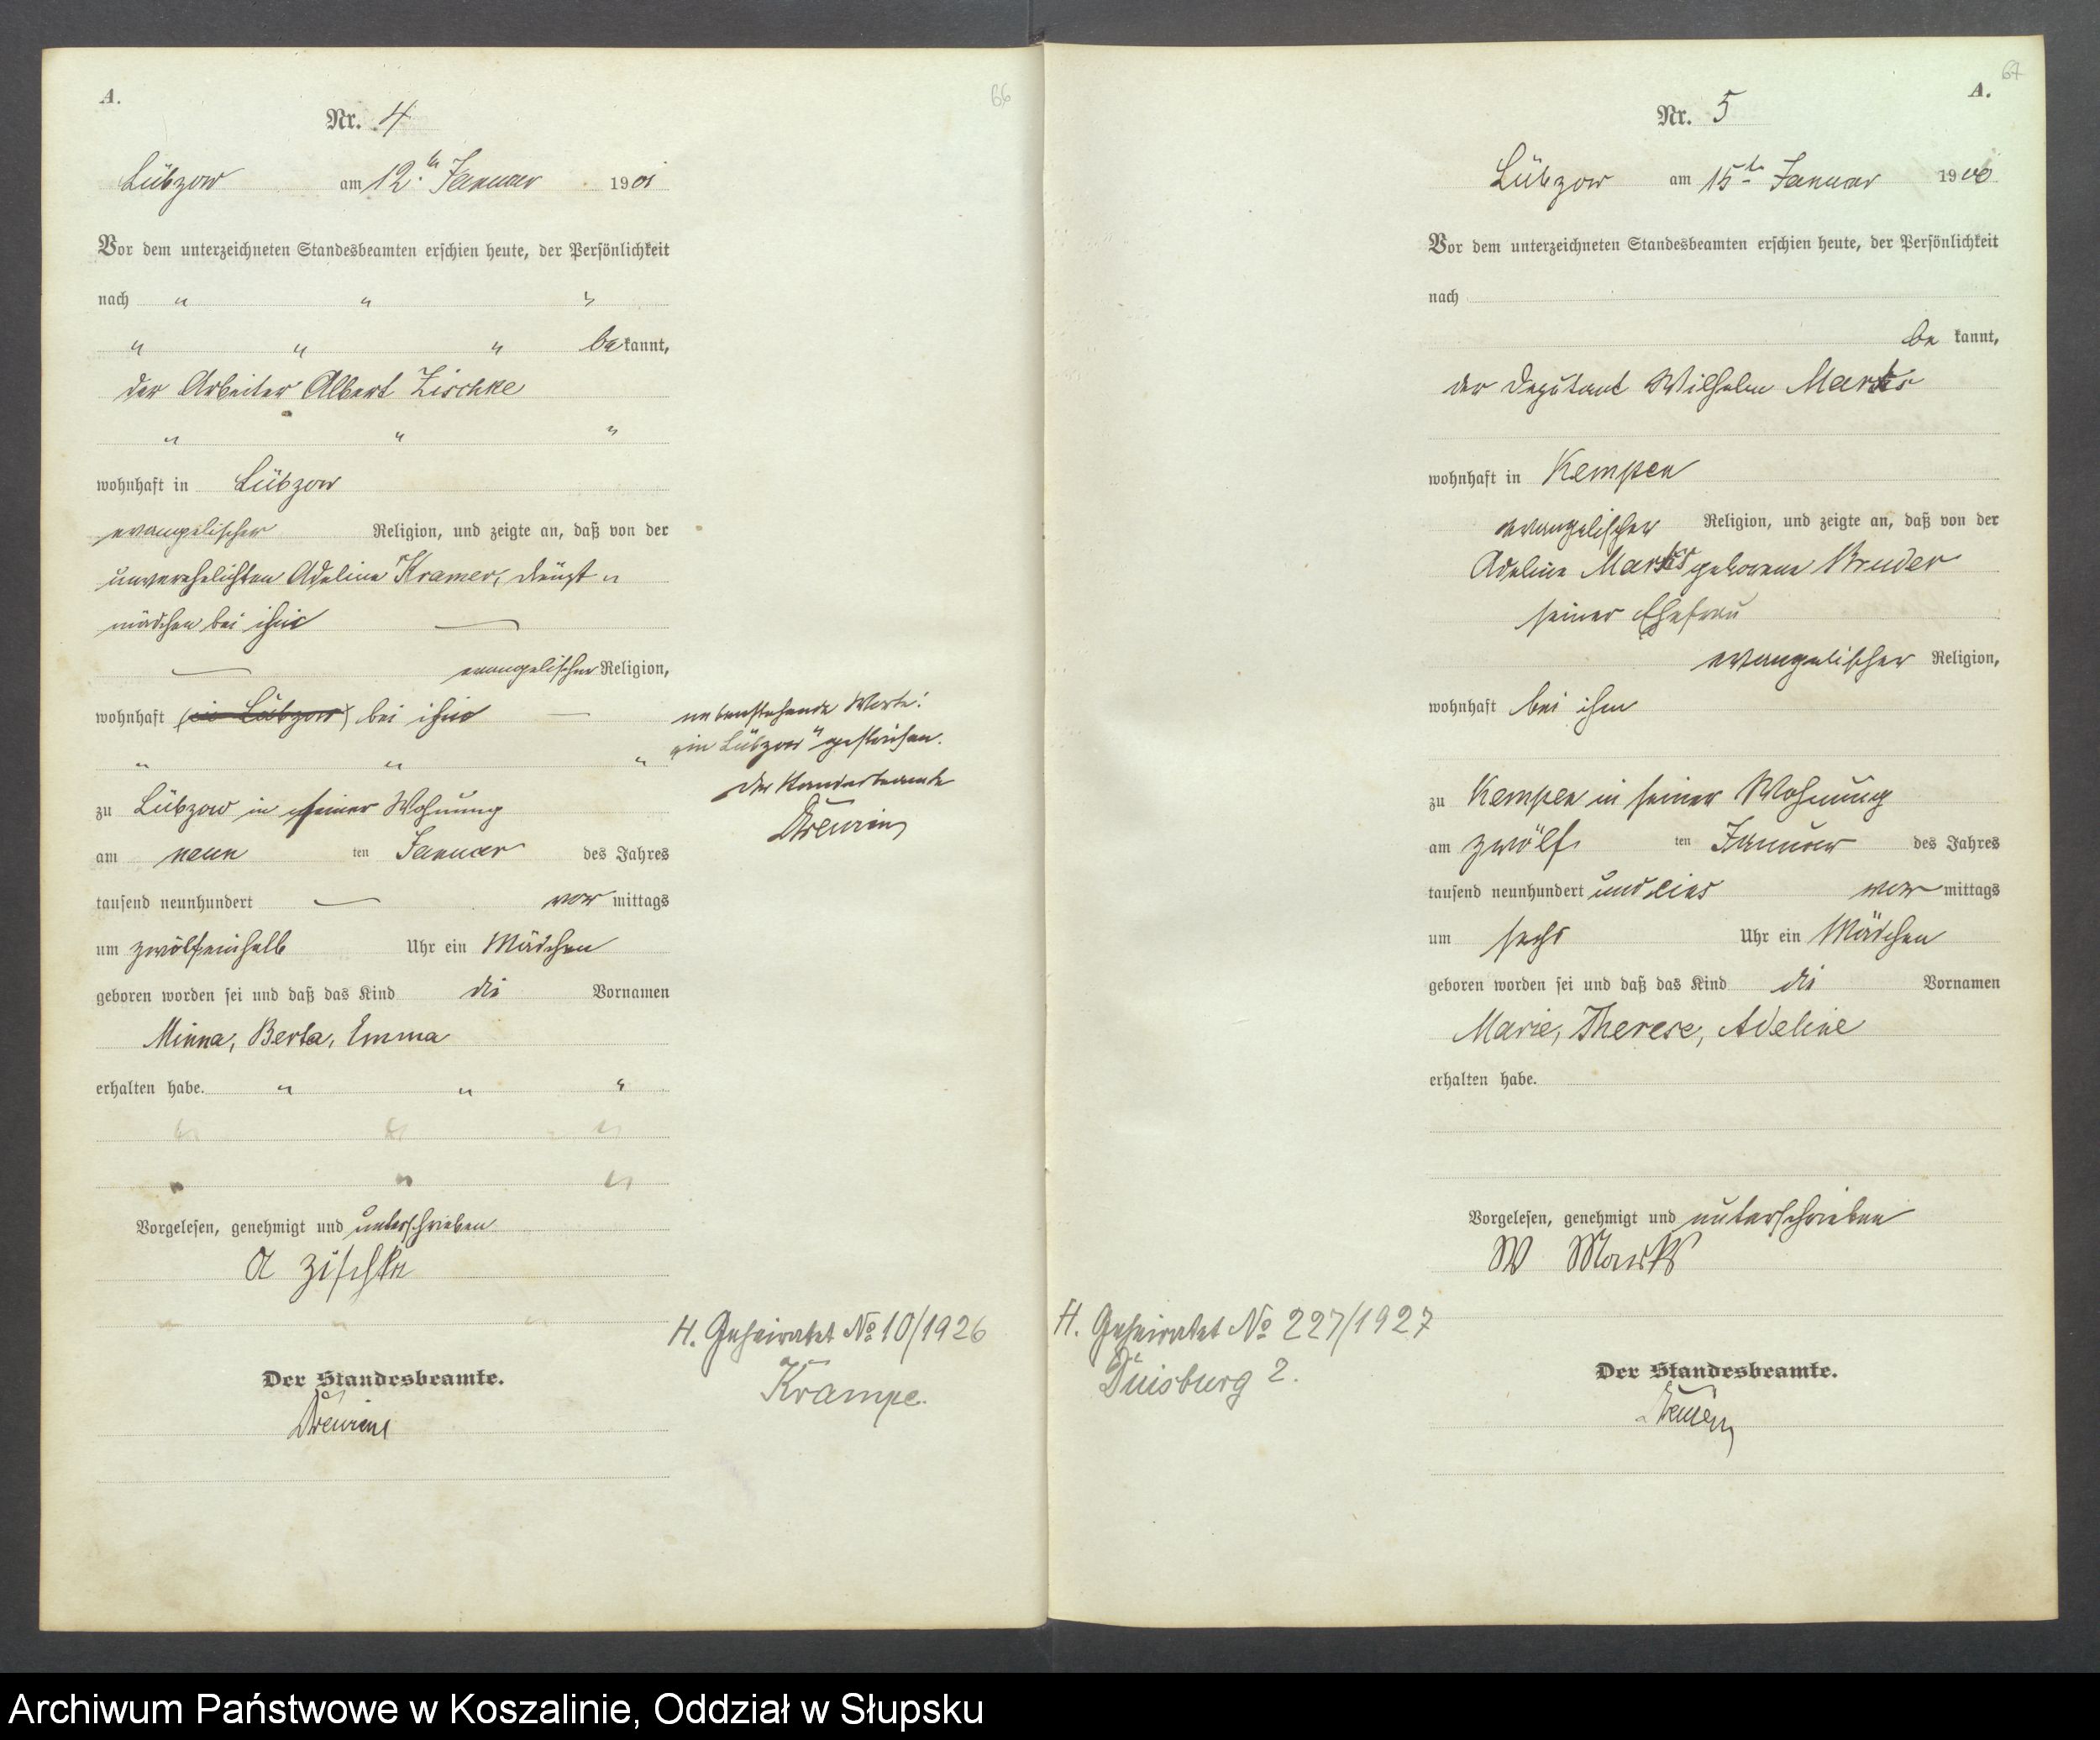 A.
66
Nr. 4
Lübzow am 12.ten Januar 1901
Vor dem unterzeichneten Standesbeamten erschien heute, der Persönlichkeit
nach " " "
" " " bekannt,
der Arbeiter Albert Zischke
" " "
wohnhaft in Lübzow
evangelischer Religion, und zeigte an, daß von der
unverehelichten Adeline Kramer, Dienst "
mädchen bei ihm —
— evangelischer Religion,
wohnhaft (in Lübzow) bei ihm —
" " "
zu Lübzow in seiner Wohnung
am neun ten Januar des Jahres
tausend neunhundert — vor mittags
um zwölfeinhalb Uhr ein Mädchen
geboren worden sei und daß das Kind die Vornamen
Minna, Berta, Emma
erhalten habe. " " "
" " "
" " "
Vorgelesen, genehmigt und unterschrieben
A Zischke
Der Standesbeamte.
nebenstehende Worte:
„in Lübzow" gestrichen.
Der Standesbeamte
H. Geheiratet No 10/1926
Krampe.
A.
67
Nr. 5
Lübzow am 15ten Januar 19
Vor dem unterzeichneten Standesbeamten erschien heute, der Persönlichkeit
nach
be kannt,
der Deputant Wilhelm Marks
wohnhaft in Kempen
evangelischer Religion, und zeigte an, daß von der
Adeline Marks geborene Bruder
seiner Ehefrau
evangelischer Religion,
wohnhaft bei ihm
zu Kempen in seiner Wohnung
am zwölf ten Januar des Jahres
tausend neunhundert und eins vor mittags
um sechs Uhr ein Mädchen
geboren worden sei und daß das Kind die Vornamen
Marie, Therese, Adeline
erhalten habe.
Vorgelesen, genehmigt und unterschrieben
W Marks
Der Standesbeamte.
H. Geheiratet No 227/1927
Duisburg 2.
Archiwum Państwowe w Koszalinie, Oddział w Słupsku